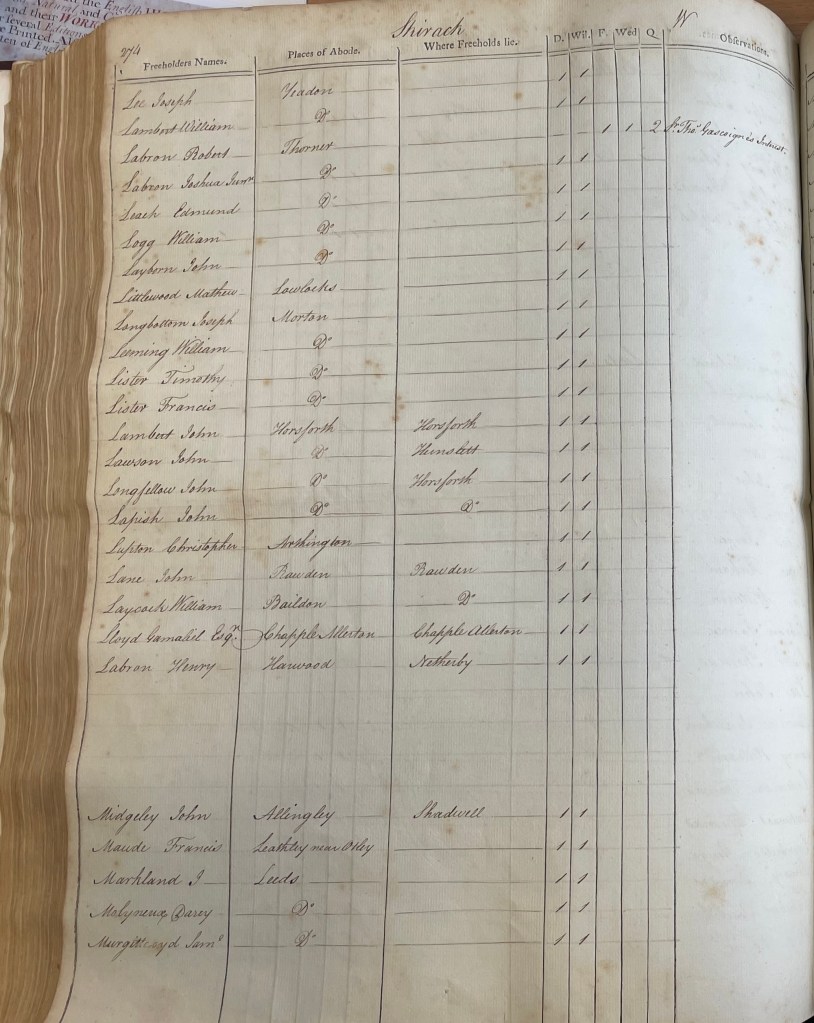 the English
Natural and
and their WORK
several Edition
e Printed. Al
ten of Engl
274 Skirack W
Freeholders Names. Places of Abode. Where Freeholds lie. D. Wil. F. Wed Q Observations.
Lee Joseph Yeadon 1 1
Lambert William Do 1 1
Labron Robert Thorner 1 1 2 Sr. Thos. Gascoigne's Interest.
Labron Joshua Junr Do 1 1
Leach Edmund Do 1 1
Logg William Do 1 1
Layborn John Do 1 1
Littlewood Mathew Lawlocks 1 1
Longbottom Joseph Morton 1 1
Leeming William Do 1 1
Lister Timothy Do 1 1
Lister Francis Do 1 1
Lambert John Horsforth Horsforth 1 1
Lawson John Do Hunslett 1 1
Longfellow John Do Horsforth 1 1
Lapish John Do Do 1 1
Lupton Christopher Arthington 1 1
Lane John Rawden Rawden 1 1
Laycock William Baildon Do 1 1
Lloyd Gamaliel Esqr. Chapple Allerton Chapple Allerton 1 1
Labron Henry Harwood Netherby 1 1
Midgeley John Allingley Shadwell 1 1
Maude Francis Leathley near Otley 1 1
Markland J Leeds 1 1
Molyneux Darcy Do 1 1
Saml Do 1 1